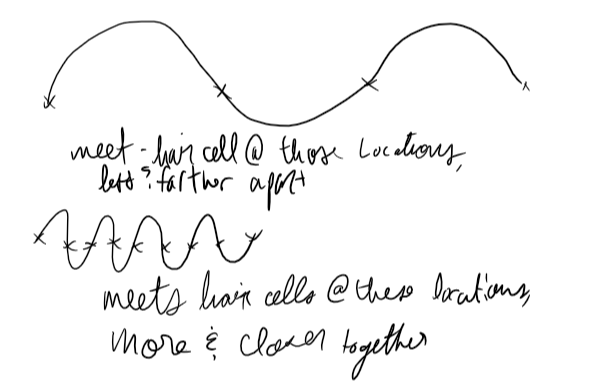 meet - hair cell @ those locations,
less & farther apart
meets hair cells @ these locations,
more & closer together